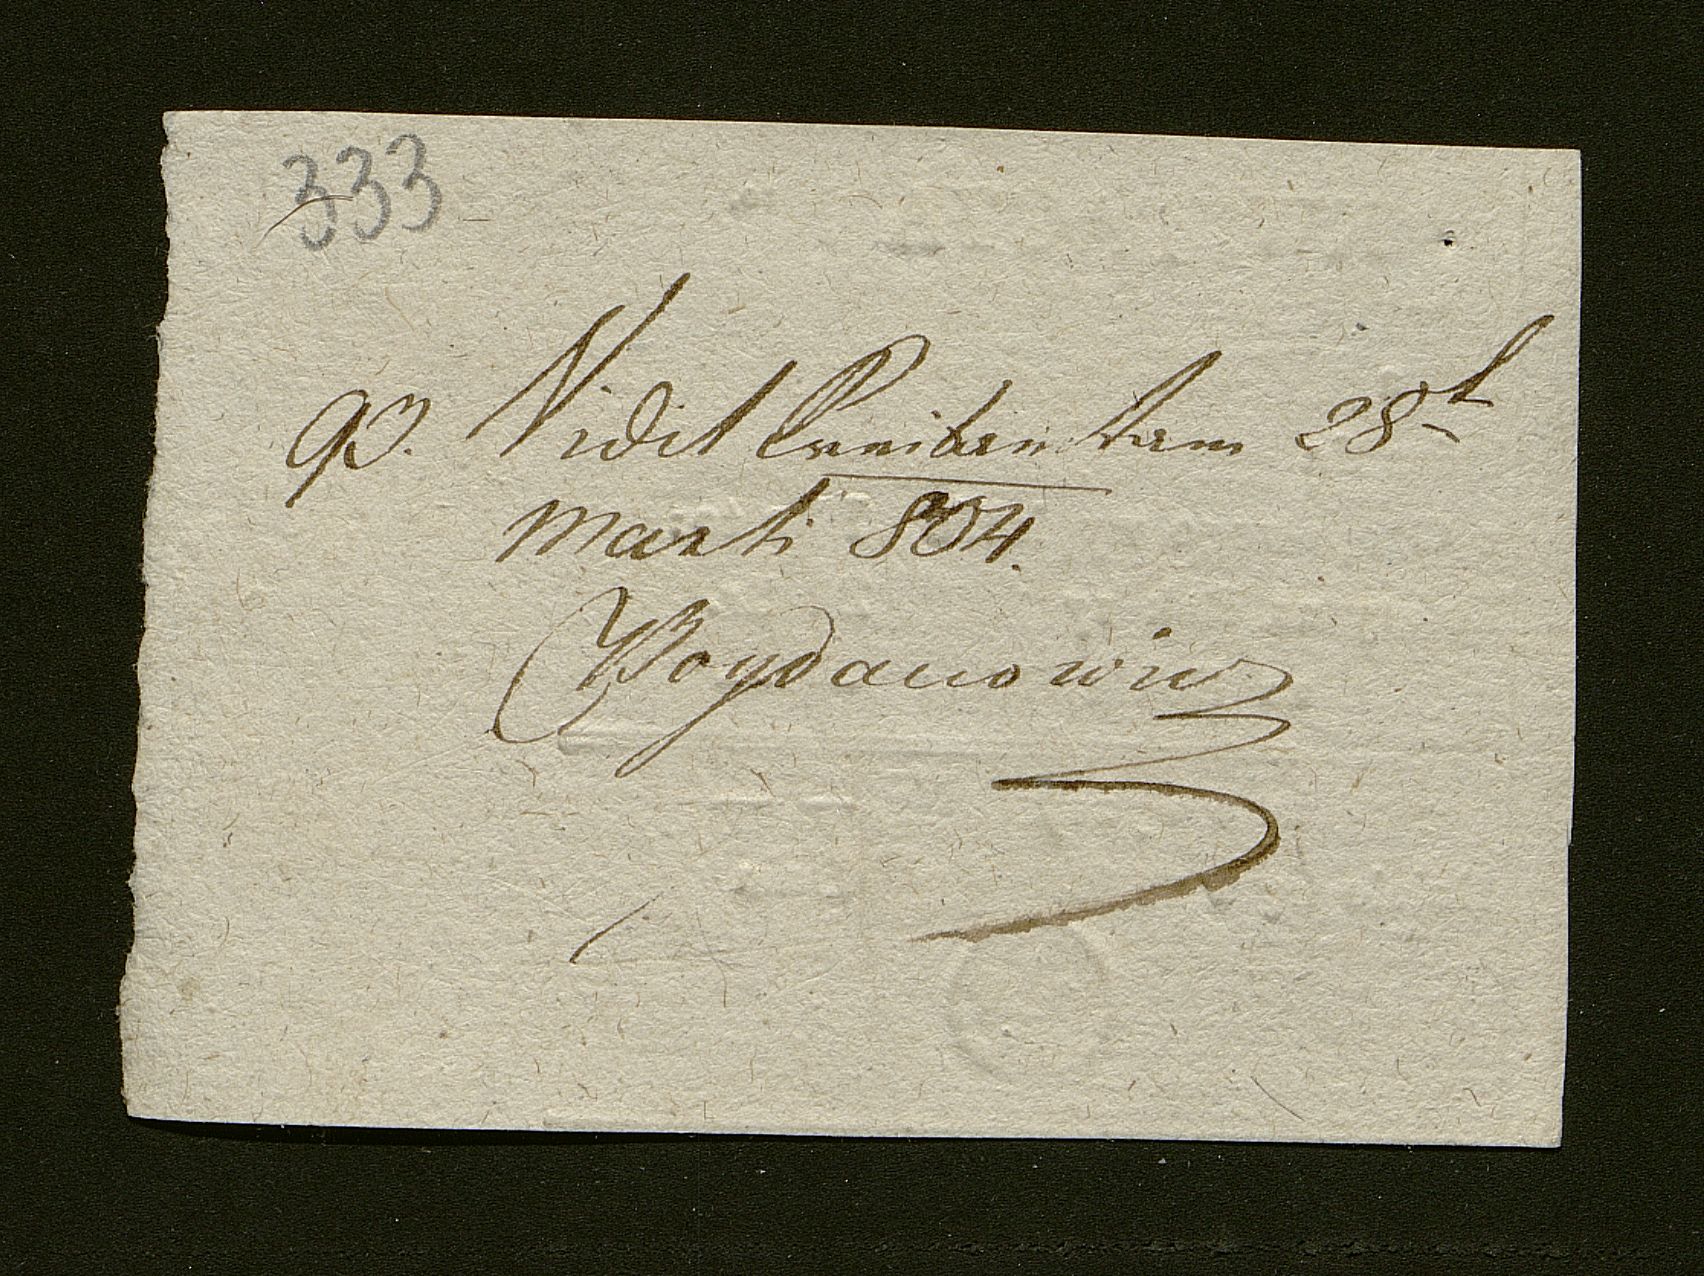 333
93. Vidit Exnitentem 28t
Marti 804.
Bogdanowicz